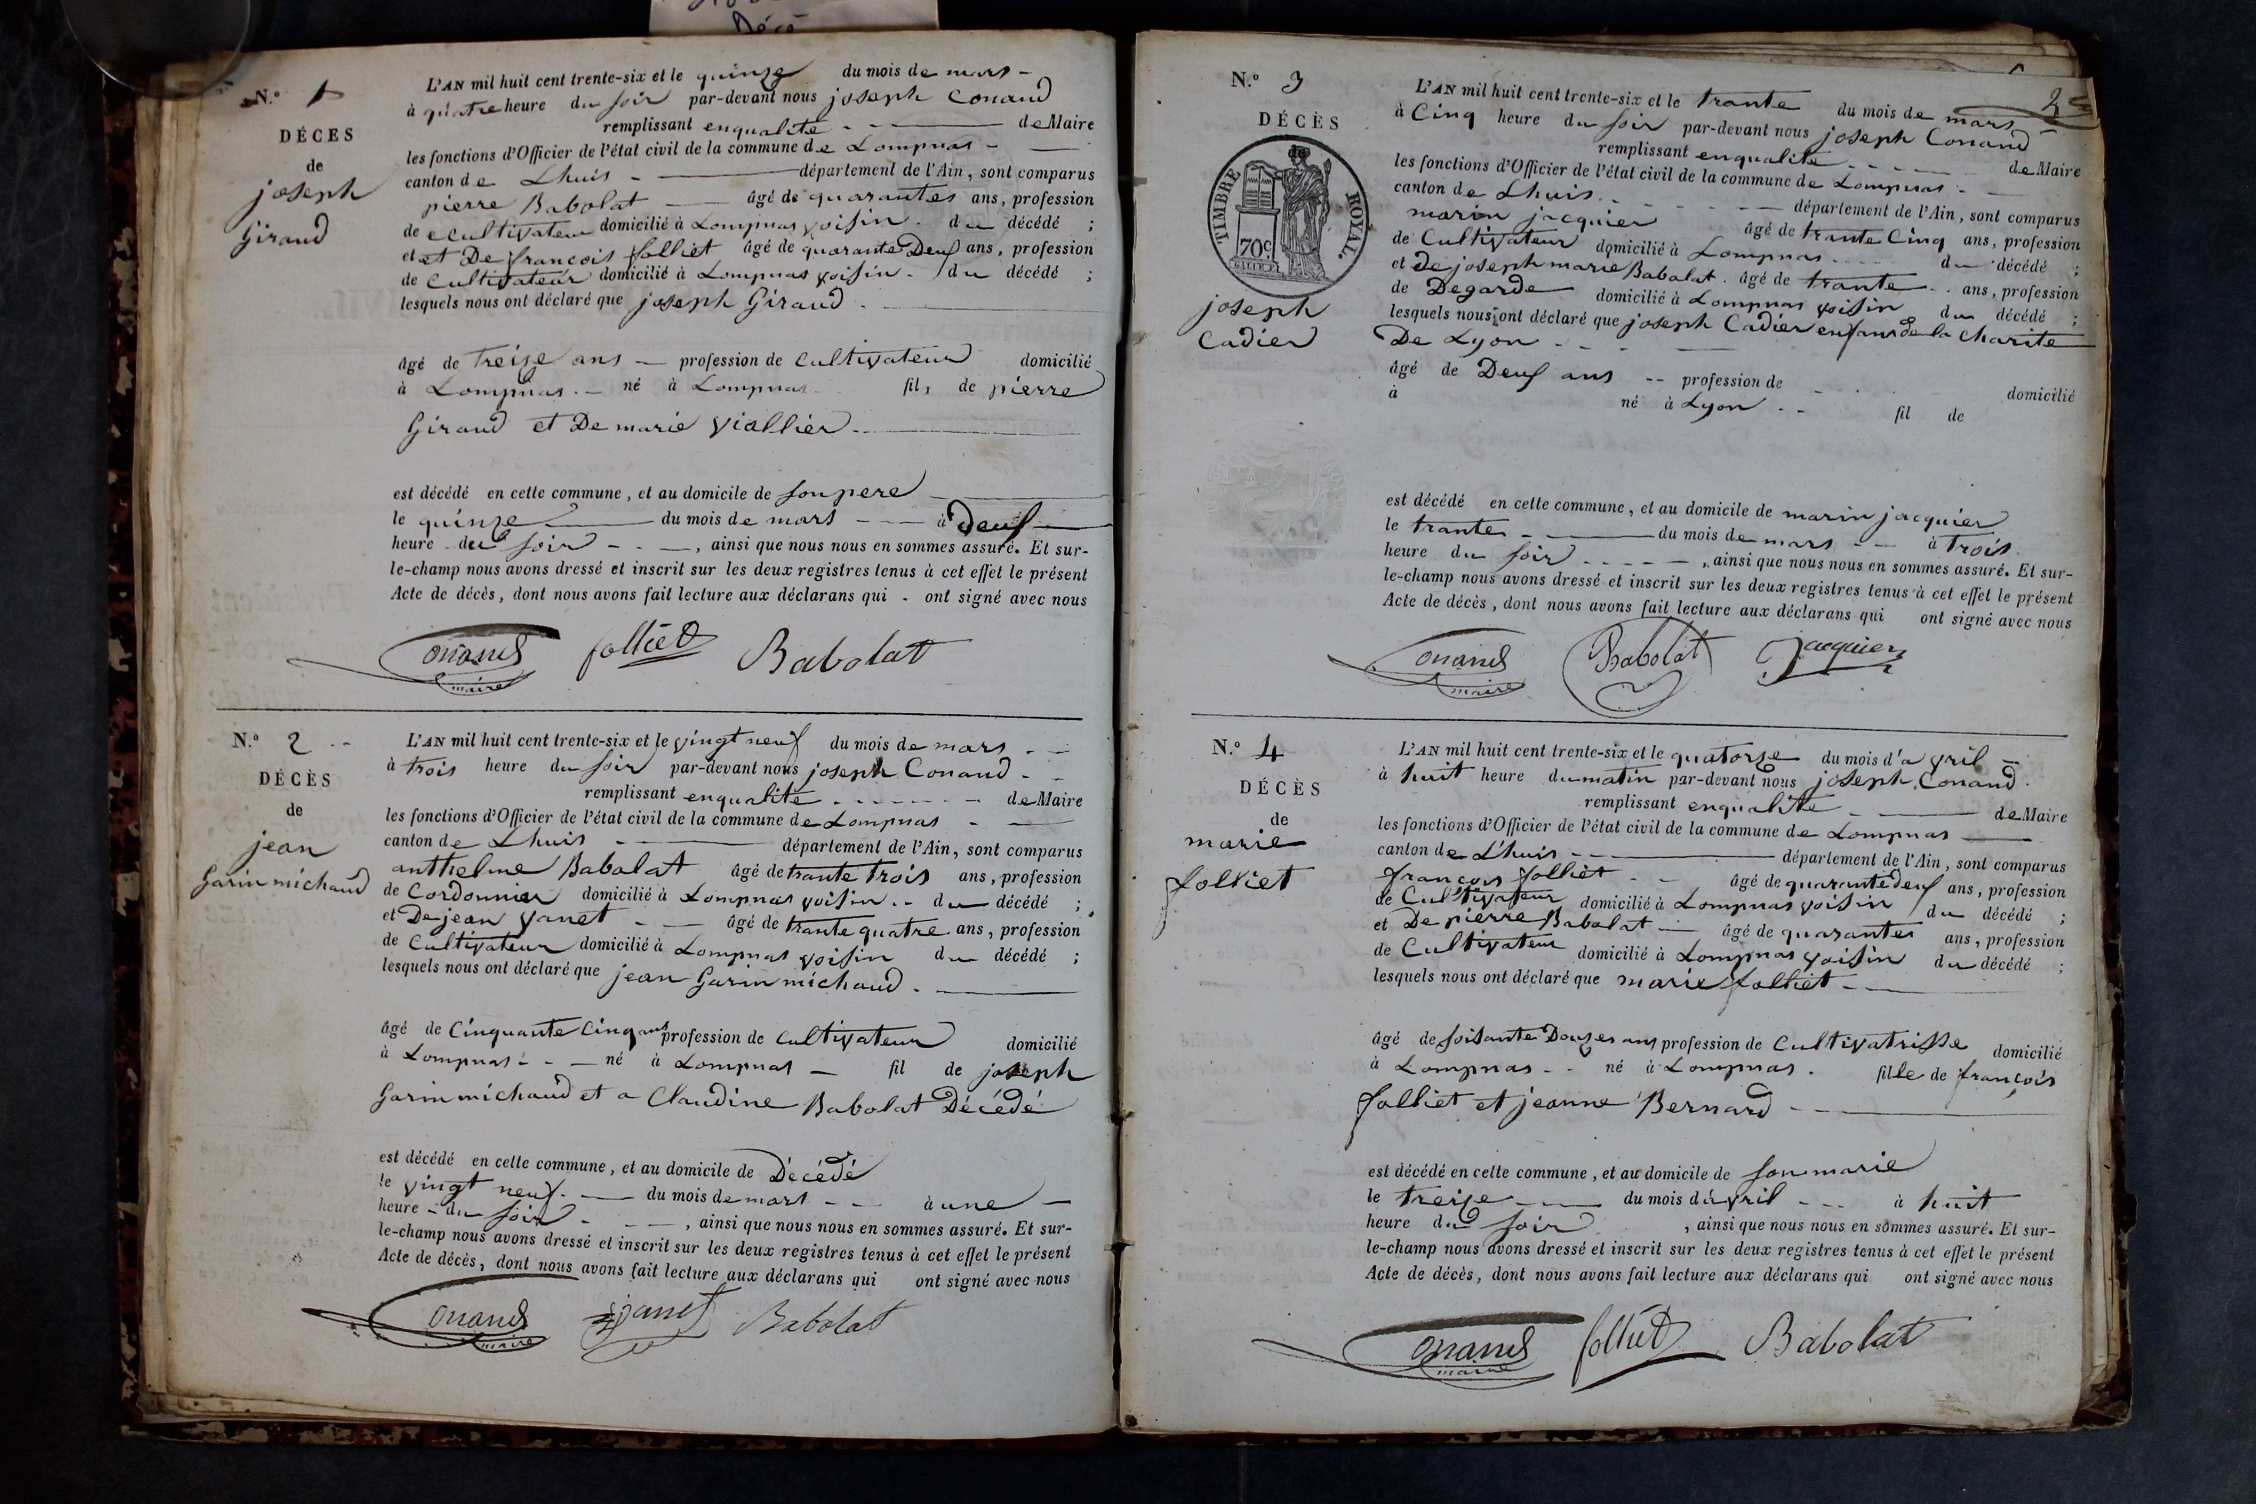 Décè
N.º 1
DÉCES
de
joseph
Giraud
L'AN mil huit cent trente-six et le quinze du mois de mars
à quatre heure du soir par-devant nous joseph Conand
remplissant enqualité de Maire
les fonctions d'Officier de l'état civil de la commune de Lompnas
canton de Lhuis département de l'Ain, sont comparus
pierre Babolat âgé de quarantes ans, profession
de ccultivateur domicilié à Lompnas voisin du décédé ;
et et De françois folliet âgé de quarante Deuf ans, profession
de Cultivateur domicilié à Lompnas voisin du décédé ;
lesquels nous ont déclaré que joseph Giraud
âgé de treize ans profession de cultivateur domicilié
à Lompnas né à Lompnas fils de pierre
Giraud et De marie viallier
est décédé en cette commune, et au domicile de son pere
le quinze du mois de mars à Deuf
heure du soir, ainsi que nous nous en sommes assuré. Et sur-
le-champ nous avons dressé et inscrit sur les deux registres tenus à cet effet le présent
Acte de décès, dont nous avons fait lecture aux déclarans qui ont signé avec nous
Conand folliet Babolat
maire
N.º 2
DÉCÈS
de
jean
Garin michaud
L'AN mil huit cent trente-six et le vingt neuf du mois de mars
à trois heure du soir par-devant nous joseph Conand
remplissant enqualité de Maire
les fonctions d'Officier de l'état civil de la commune de Lompnas
canton de Lhuis département de l'Ain, sont comparus
anthelme Babolat âgé de trante trois ans, profession
de Cordonnier domicilié à Lompnas voisin du décédé ;
et De jean vanet âgé de trante quatre ans, profession
de Cultivateur domicilié à Lompnas voisin du décédé ;
lesquels nous ont déclaré que jean Garin michaud
âgé de Cinquante Cinq ans profession de cultivateur domicilié
à Lompnas né à Lompnas fil de joseph
Garin michaud et a Claudine Babolat Décédé
est décédé en cette commune, et au domicile de Décédé
le vingt neuf du mois de mars à une
heure du soir, ainsi que nous nous en sommes assuré. Et sur-
le-champ nous avons dressé et inscrit sur les deux registres tenus à cet effet le présent
Acte de décès, dont nous avons fait lecture aux déclarans qui ont signé avec nous
Conand vanet Babolat
maire
N.º 3
DÉCÈS
de
TIMBRE ROYAL.
70c
joseph
Cadier
2
L'AN mil huit cent trente-six et le trante du mois de mars
à Cinq heure du soir par-devant nous joseph Conand
remplissant enqualité de Maire
les fonctions d'Officier de l'état civil de la commune de Lompnas
canton de Lhuis département de l'Ain, sont comparus
marin jacquier âgé de trante Cinq ans, profession
de Cultivateur domicilié à Lompnas du décédé ;
et De joseph marie Babolat âgé de trante ans, profession
de Degarde domicilié à Lompnas voisin du décédé ;
lesquels nous ont déclaré que joseph Cadier enfans de la Charite
De Lyon
âgé de Deuf ans profession de domicilié
à né à Lyon fil de
est décédé en cette commune, et au domicile de marin jacquier
le trantes du mois de mars à trois
heure du soir, ainsi que nous nous en sommes assuré. Et sur-
le-champ nous avons dressé et inscrit sur les deux registres tenus à cet effet le présent
Acte de décès, dont nous avons fait lecture aux déclarans qui ont signé avec nous
Conand Babolat Jacquier
maire
N.º 4
DÉCÈS
de
marie
folliet
L'AN mil huit cent trente-six et le quatorze du mois d'avril
à huit heure du matin par-devant nous joseph Conand
remplissant enqualité de Maire
les fonctions d'Officier de l'état civil de la commune de Lompnas
canton de Lhuis département de l'Ain, sont comparus
françois folliet âgé de quarante deuf ans, profession
de Cultivateur domicilié à Lompnas voisin du décédé ;
et De pierre Babolat âgé de quarantes ans, profession
de Cultivateur domicilié à Lompnas voisin du décédé ;
lesquels nous ont déclaré que marie folliet
âgé de soisante Douzes ans profession de Cultivatrisse domicilié
à Lompnas né à Lompnas fille de françois
folliet et jeanne Bernard
est décédé en cette commune, et au domicile de son marie
le treize du mois d'avril à huit
heure du soir, ainsi que nous nous en sommes assuré. Et sur-
le-champ nous avons dressé et inscrit sur les deux registres tenus à cet effet le présent
Acte de décès, dont nous avons fait lecture aux déclarans qui ont signé avec nous
Conand folliet Babolat
maire